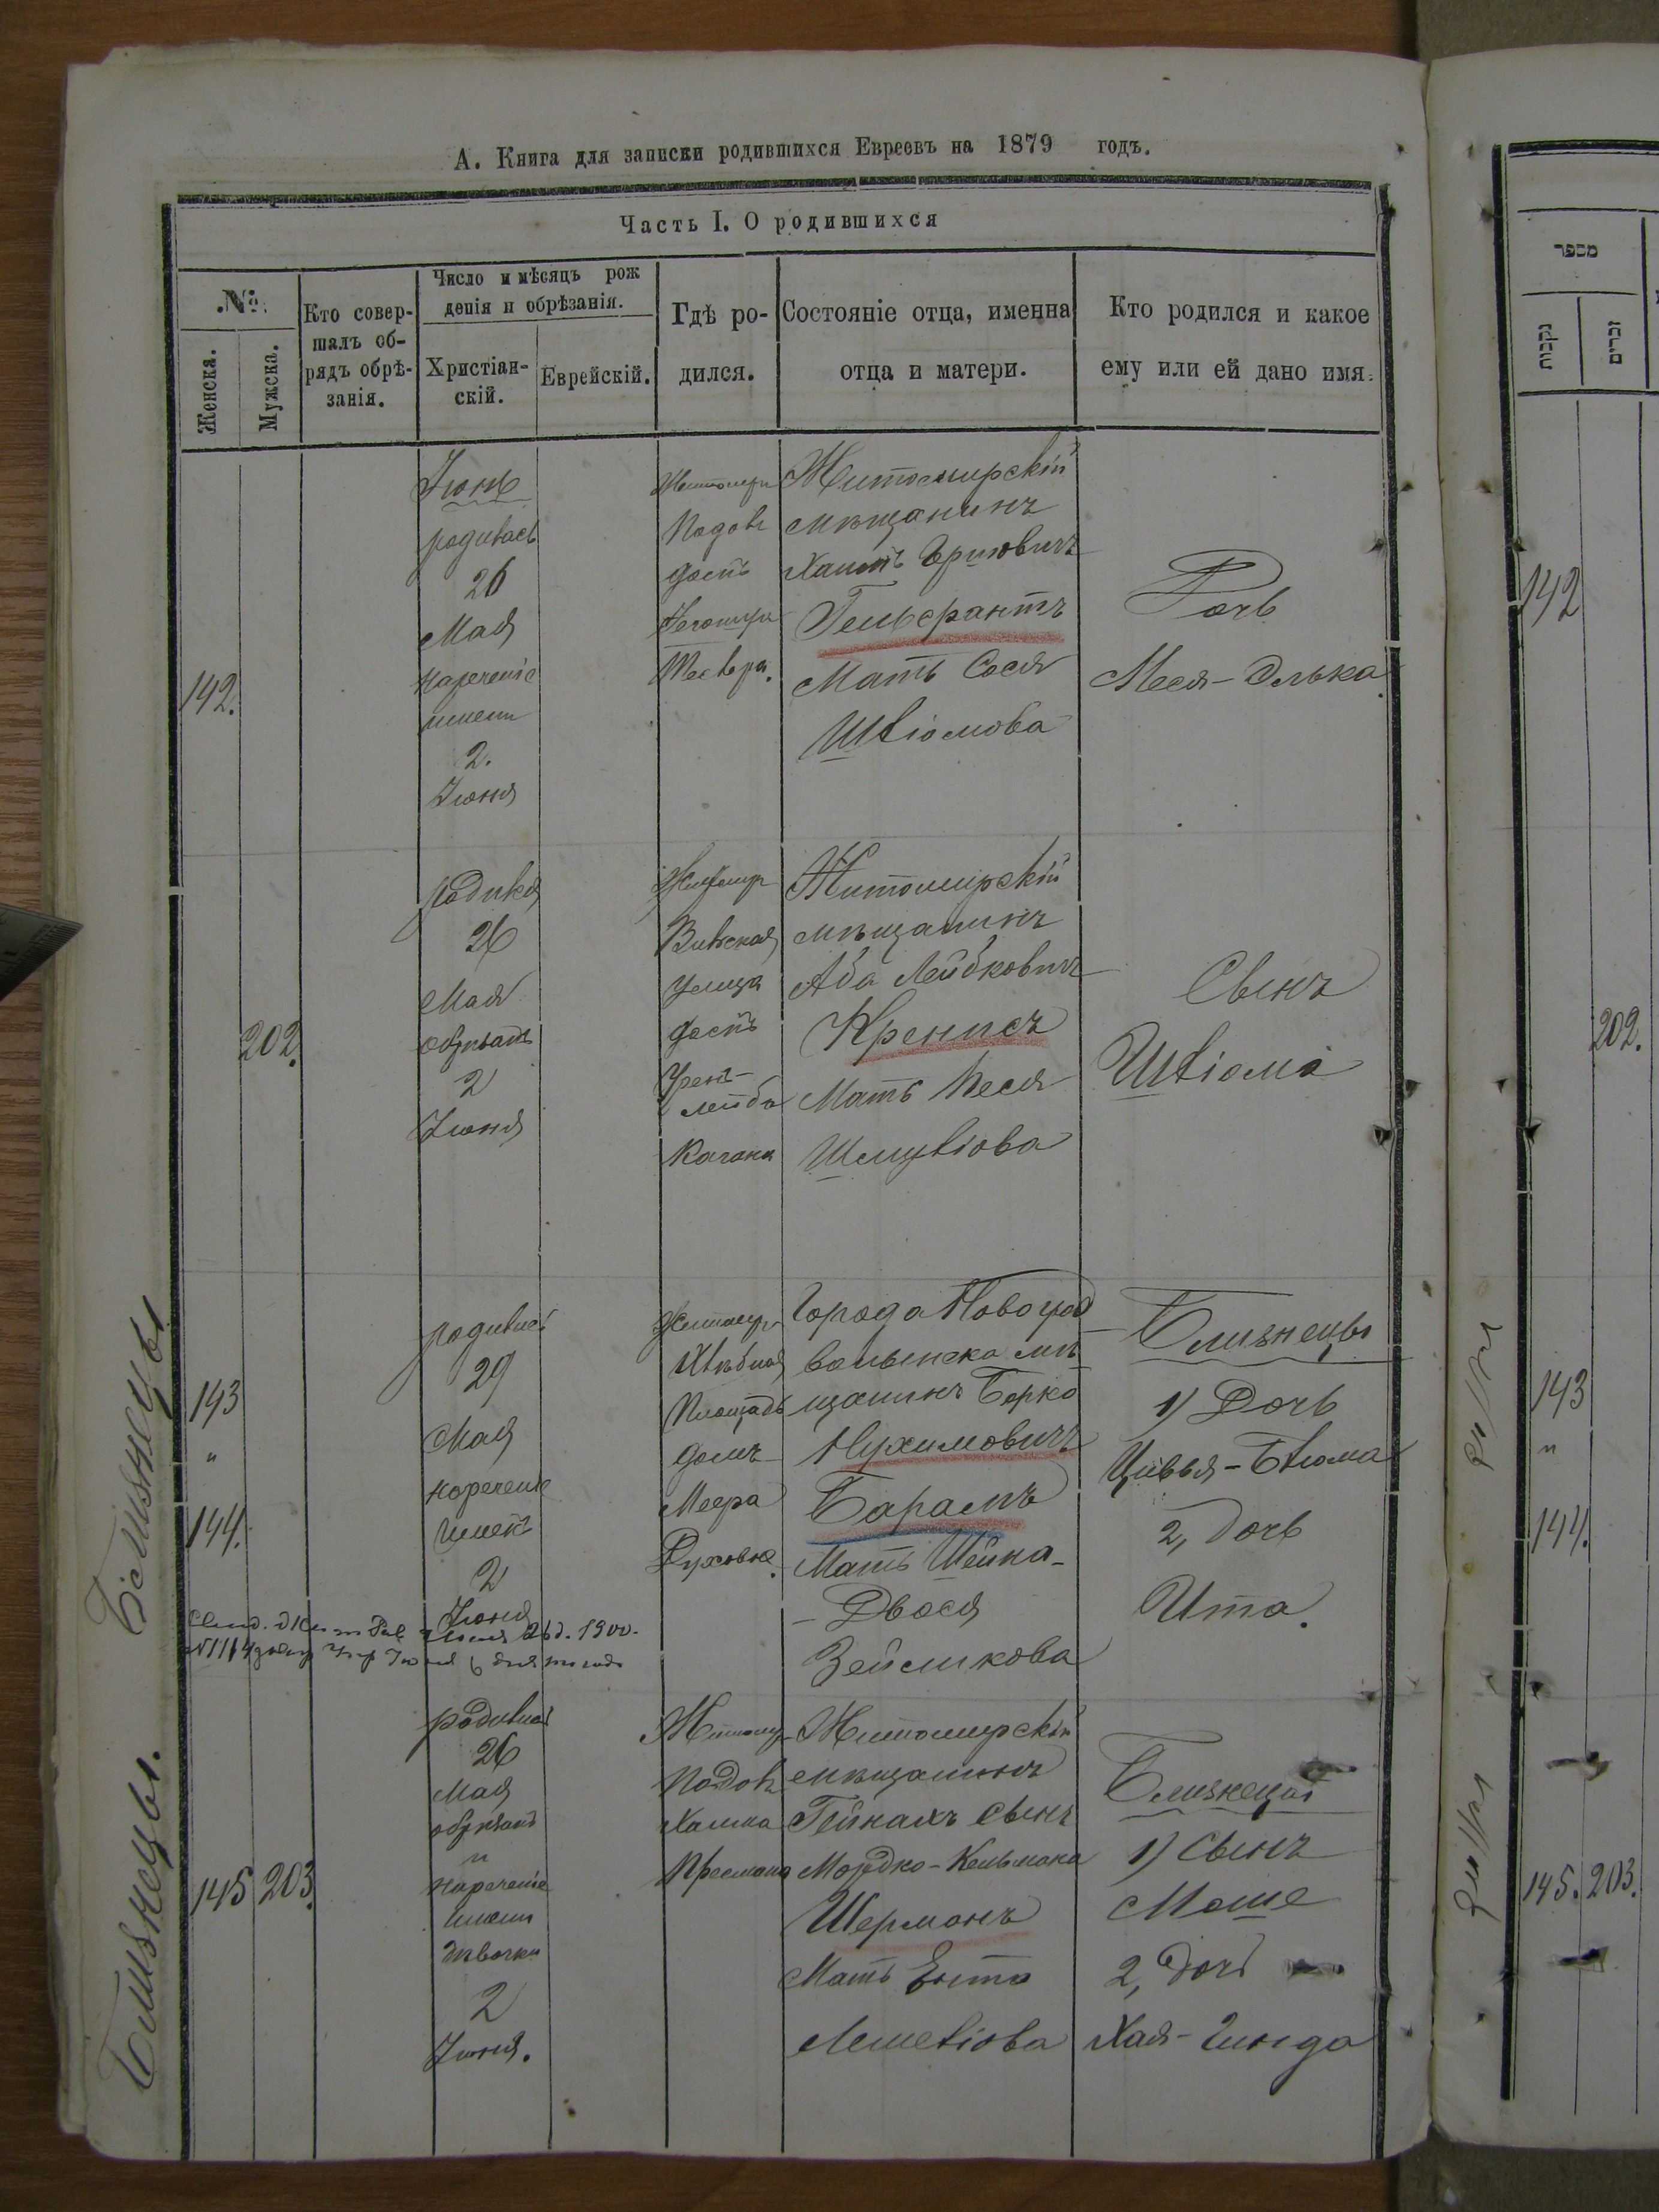 А. Книга для записки родившихся Евреевъ на 1879 годъ.
Часть I. О родившихся
№
Женска.
Мужска.
Кто совер-
шалъ об-
рядъ обрѣ-
занія.
Число и мѣсяцъ рож
денія и обрѣзанія.
Христіан-
скій.
Еврейскій.
Гдѣ ро-
дился.
Состояніе отца, именна
отца и матери.
Кто родился и какое
ему или ей дано имя.
142.
Іюнь
родилась
26
Мая
нареченіе
имени
2.
Іюня
Житомир
Подолъ
домъ
Житомирскій
мѣщанинъ
Хаимъ
Мать Сося
Шліомова
Дочь
Меся-Элька
202.
родился
26
Мая
обрѣзанъ
2
Іюня
Житомир
Вильская
улица
домъ
Лейба
Кагана
Житомирскій
мѣщанинъ
Аба Лейбковичъ
Кренисъ
Мать Песя
Шмуліова
Сынъ
Шліома
Близнецы
143
"
144.
родились
29
Мая
нареченіе
именъ
2
Іюня
Житомир
Хлѣбная
Площадь
домъ
Меера
Города Новоград
волынска мѣ
щанинъ Берко
Нухимовичъ
Барамъ
Мать Шейна-
-Двося
Зейликова
Близнецы
1) Дочь
Цивья-Блюма
2, дочь
Ита.
1900.
Близнецы.
145 203.
родились
26
Мая
обрѣзанъ
и
нареченіе
имени
дѣвочки
2
Іюня.
Житомир
Подолъ
Хаима
Пресмана
Житомирскій
мѣщанинъ
Гейнахъ сынъ
Мордко-Кельмана
Шерманъ
Мать Ента
Близнецы
1) Сынъ
Моше
2, дочь
Хая-Гинда
מספר
נקבות
זכרים
142
202.
143
"
144.
145. 203.